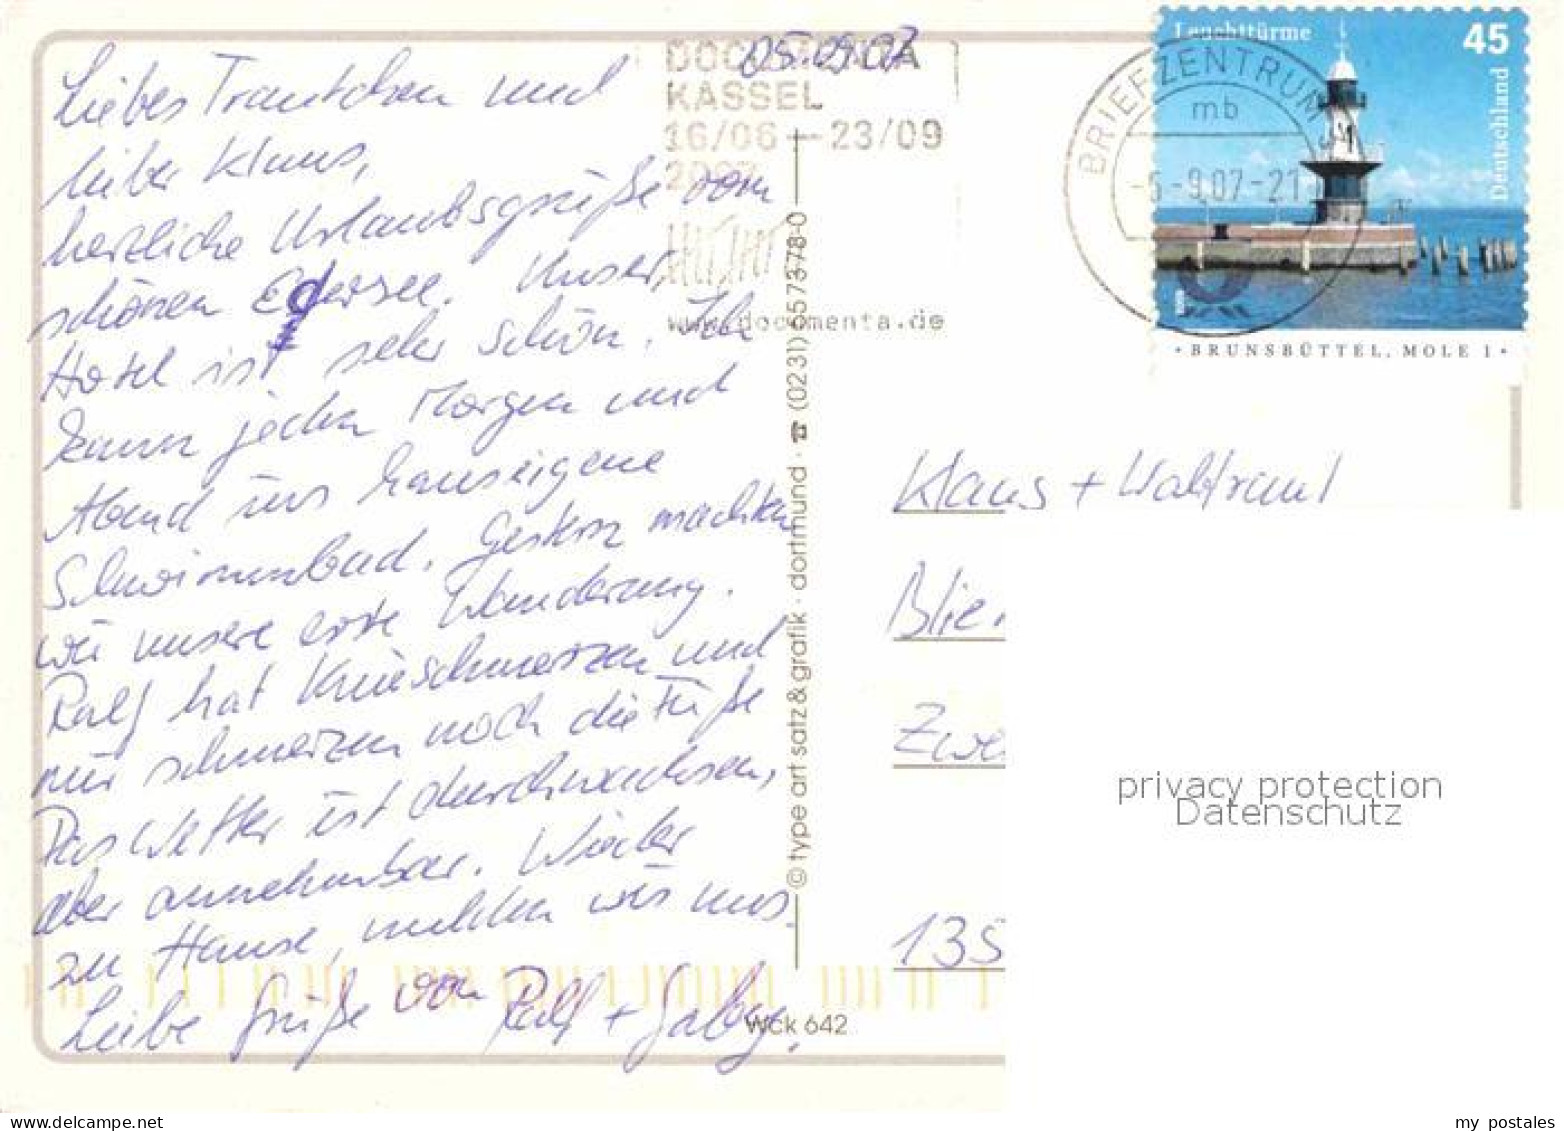 05.09.07
Liebes Trautchen und
lieber Klaus,
herzliche Urlaubsgrüße vom
schönen Edersee. Unser
Hotel ist sehr schön. Ich
kann jeden Morgen und
Abend ins hauseigene
Schwimmbad. Gestern machten
wir unsere erste Wanderung.
Ralf hat Knieschmerzen und
mir schmerzen noch die Füße
Das Wetter ist durchwachsen,
aber annehmbar. Wieder
zu Hause, melden wir uns.
Liebe Grüße von Ralf + Gaby.
DOCUMENTA
KASSEL
16/06 - 23/09
2007
www.documenta.de
© type art satz & grafik · dortmund · ☎ (0231) 657378-0
Wck 642
BRIEFZENTRUM 34
mb
-5-9.07-21
Leuchttürme 45
Deutschland
• BRUNSBÜTTEL, MOLE 1 •
Klaus + Waltraut
Blie
Zwe
135
privacy protection
Datenschutz
my postales